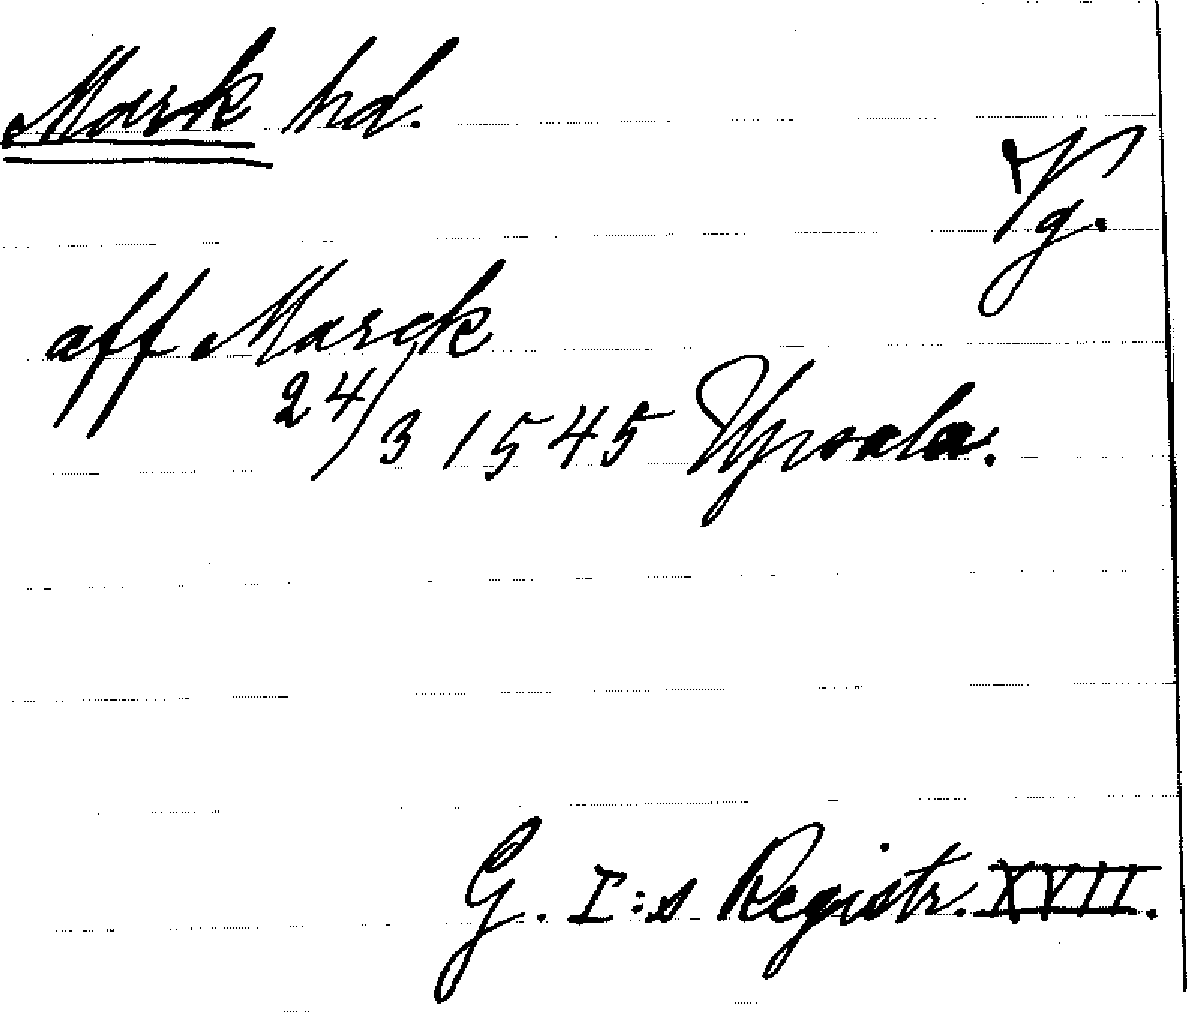 Mark hd.
Vg.
aff Marck
24/3 1545 Upsala.
G. I:s Registr. XVII.